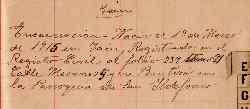 Jaén
Encarnación - Nació el 1º de Marzo
de 1915 en Jaén, Registrado en el
Registro Civil al folio 237
Calle Mesones y fue Bautiza en
la Parroquia de San Ildefonso